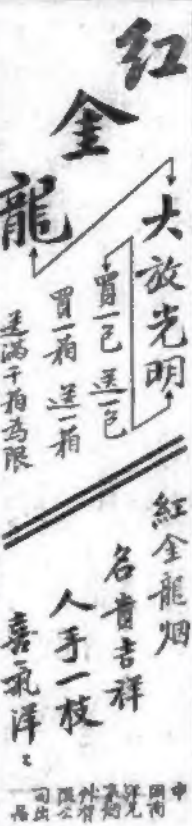 紅金龍
大放光明
買一包送一包
買一箱送一箱
送滿千箱為限
紅金龍烟
名貴吉祥
人手一枝
喜氣洋々
中國南洋兄弟烟草有限公司出品